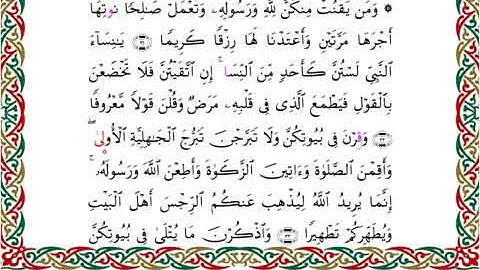 ۞ وَمَن يَقْنُتْ مِنكُنَّ لِلَّهِ وَرَسُولِهِۦ وَتَعْمَلْ صَٰلِحًا نُوتِهَا
أَجْرَهَا مَرَّتَيْنِ وَأَعْتَدْنَا لَهَا رِزْقًا كَرِيمًا ۝٣١ يَٰنِسَآءَ
ٱلنَّبِيِّ لَسْتُنَّ كَأَحَدٍ مِّنَ ٱلنِّسَا ۚ إِنِ ٱتَّقَيْتُنَّ فَلَا تَخْضَعْنَ
بِٱلْقَوْلِ فَيَطْمَعَ ٱلَّذِى فِى قَلْبِهِۦ مَرَضٌ وَقُلْنَ قَوْلًا مَّعْرُوفًا
۝٣٢ وَقِرْنَ فِى بُيُوتِكُنَّ وَلَا تَبَرَّجْنَ تَبَرُّجَ ٱلْجَٰهِلِيَّةِ ٱلْأُولَىٰ ۖ
وَأَقِمْنَ ٱلصَّلَوٰةَ وَءَاتِينَ ٱلزَّكَوٰةَ وَأَطِعْنَ ٱللَّهَ وَرَسُولَهُۥ ۚ
إِنَّمَا يُرِيدُ ٱللَّهُ لِيُذْهِبَ عَنكُمُ ٱلرِّجْسَ أَهْلَ ٱلْبَيْتِ
وَيُطَهِّرَكُمْ تَطْهِيرًا ۝٣٣ وَٱذْكُرْنَ مَا يُتْلَىٰ فِى بُيُوتِكُنَّ